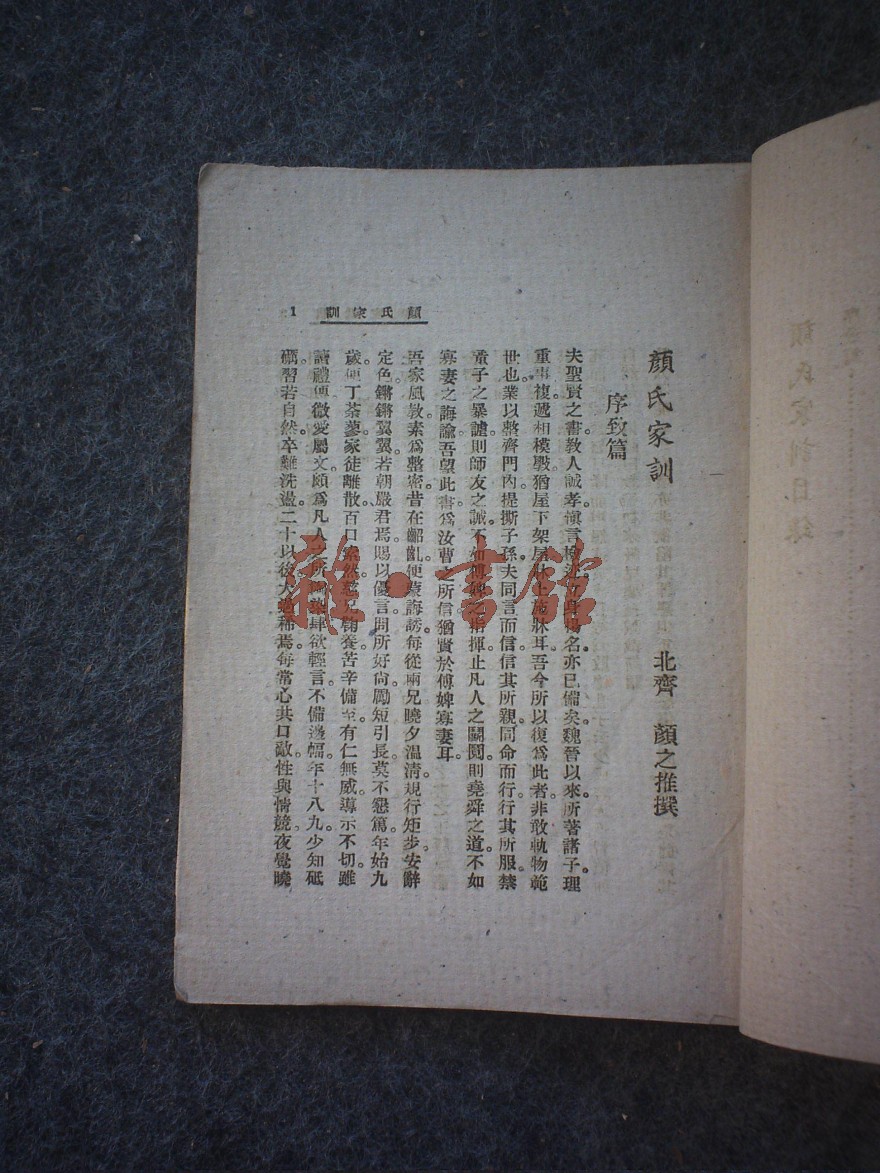 顏氏家訓
北齊 顏之推撰
序致篇
夫聖賢之書敎人誠孝愼言檢迹立身揚名亦已備矣魏晉以來所著諸子理
重事複遞相模斅猶屋下架屋牀上施牀耳吾今所以復爲此者非敢軌物範
世也業以整齊門內提撕子孫夫同言而信信其所親同命而行行其所服禁
童子之暴謔則師友之誡不如傅婢之指揮止凡人之鬭鬩則堯舜之道不如
寡妻之誨諭吾望此書爲汝曹之所信猶賢於傅婢寡妻耳。
吾家風敎素爲整密昔在齠齔便蒙誨誘每從兩兄曉夕溫凊規行矩步安辭
定色。鏘鏘翼翼。若朝嚴君焉。賜以優言。問所好尙。勵短引長。莫不懇篤。年始九
歲。便丁荼蓼。家徒離散。百口索然。慈兄鞠養。苦辛備至。有仁無威。導示不切。雖
讀禮傳微愛屬文頗爲凡人之所陶染肆欲輕言。不備邊幅。年十八九。少知砥
礪。習若自然。卒難洗盪。二十以後。大過稀焉。每常心共口敵。性與情競。夜覺曉
顏氏家訓
1
雜·書館